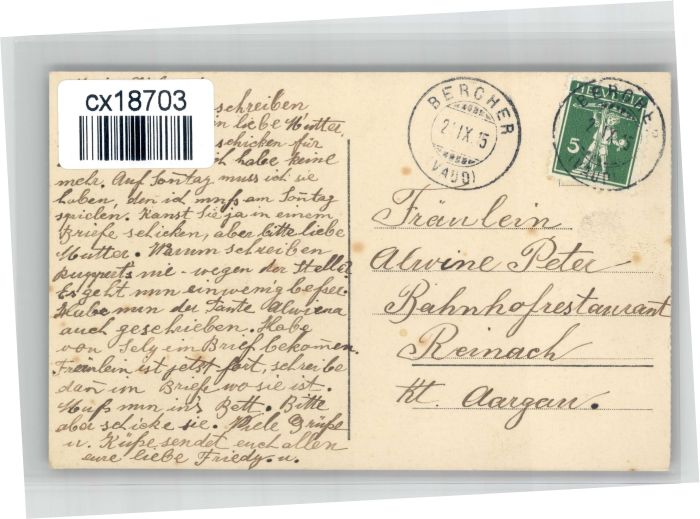 cx18703
schreiben
liebe Mutter,
schicken für
habe keine
mehr. Auf Sontag muss ich sie
haben, den ich muss am Sontag
spielen. Kanst Sie ja in einem
Briefe schicken, aber bitte liebe
Mutter. Warum schreiben
Rupperts nie - wegen der Stelle?
Es geht nun ein wenig besser.
Habe nun der Tante Alwiena
auch geschrieben. Habe
von Sely ein Brief bekomen.
Fräulein ist jetzt fort, schreibe
dan im Briefe wo sie ist.
Muß nun in's Bett. Bitte
aber schicke sie. Viele Grüße
u. Küße sendet euch allen
eure liebe Friedy. u.
BERCHER
21.IX.15
(VAUD)
HELVETIA
5
BERCHER
21.IX.15
(VAUD)
Fräulein
Alwine Peter
Bahnhofrestaurant
Reinach
Kt. Aargau.